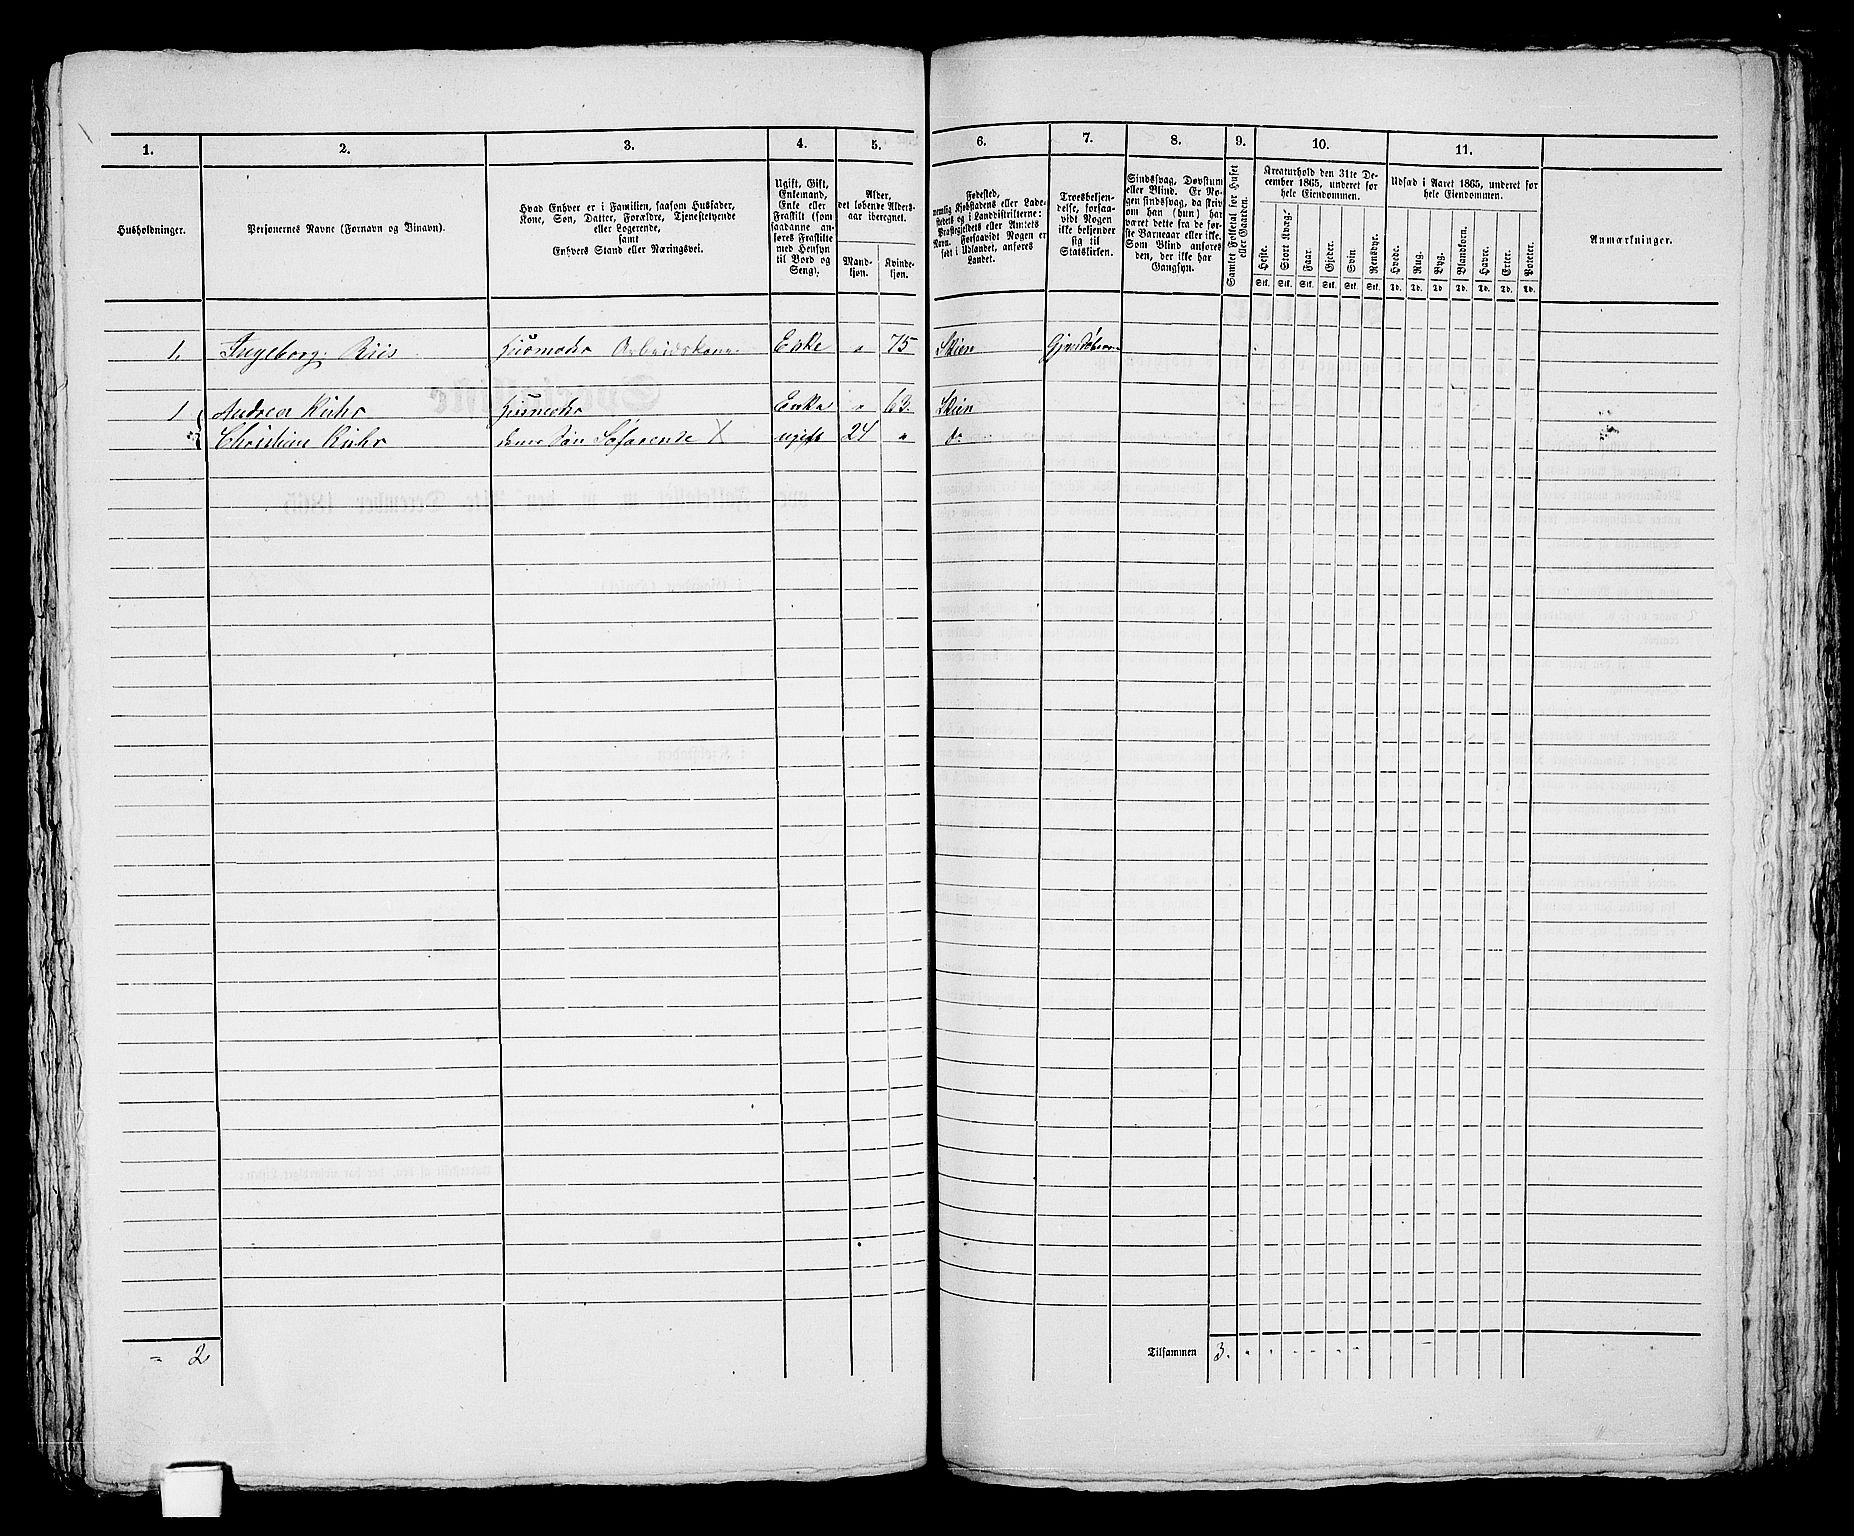 1. 2. 3. 4. 5. 6. 7. 8. 9. 10. 11.
Husholdninger.
Personernes Navne (Fornavn og Tilnavn).
Hvad Enhver er i Familien, saasom Husfader,
Kone, Søn, Datter, Forældre, Tjenestetyende
eller Logerende,
samt
Enhvers Stand eller Næringsvei.
Ugift, Gift,
Enkemand,
Enke eller
Fraskilt (som
saadanne an-
føres Fraskilte
med Hensyn
til Bord og
Seng).
Alder,
det løbende Alders-
aar iberegnet.
Mand-
kjøn.
Kvinde-
kjøn.
Fødested,
nemlig Kjøbstadens eller Lade-
stedets og i Landdistrikterne:
Præstegjeldets eller Amtets
Navn. Forsaavidt Nogen er
født i Udlandet, anføres
Landet.
Troesbekjen-
delse, forsaa-
vidt Nogen
ikke bekjender
sig til
Statskirken.
Sindssvag, Døvstum
eller Blind. Er No-
gen sindssvag, da skriv
om han (hun) har
været dette fra de før-
ste Barneaar eller ikke.
Som Blind anføres
den, der ikke har
Gangsyn.
Samlet Folketal for Huset
eller Gaarden.
Kreaturhold den 31te De-
cember 1865, underet for
hele Eiendommen.
Heste. Stort Kvæg. Faar. Gjeder. Svin Rensdyr.
Stk. Stk. Stk. Stk. Stk. Stk.
Udsæd i Aaret 1865, underet for
hele Eiendommen.
Hvede. Rug. Byg. Blandkorn. Havre. Erter. Poteter.
Td. Td. Td. Td. Td. Td. Td.
Anmærkninger.
1. Ingeborg Riis Huusmoder Enke " 75 Skien
1 Andrea Kuhr Enke " 63. Skien
Christine Kuhr Søn Søfarende X ugift 24 " do
= 2
Tilsammen 3. " " " " " "